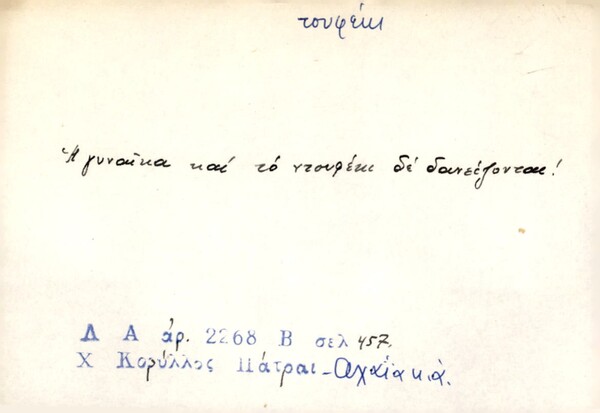 τουφέκι
Ἡ γυναῖκα καί τό ντουφέκι δέ δανείζονται!
Λ Α ἀρ. 2268 Β σελ 457.
Χ Κορύλλος Πάτραι-Ἀχαΐα κ.ἀ.